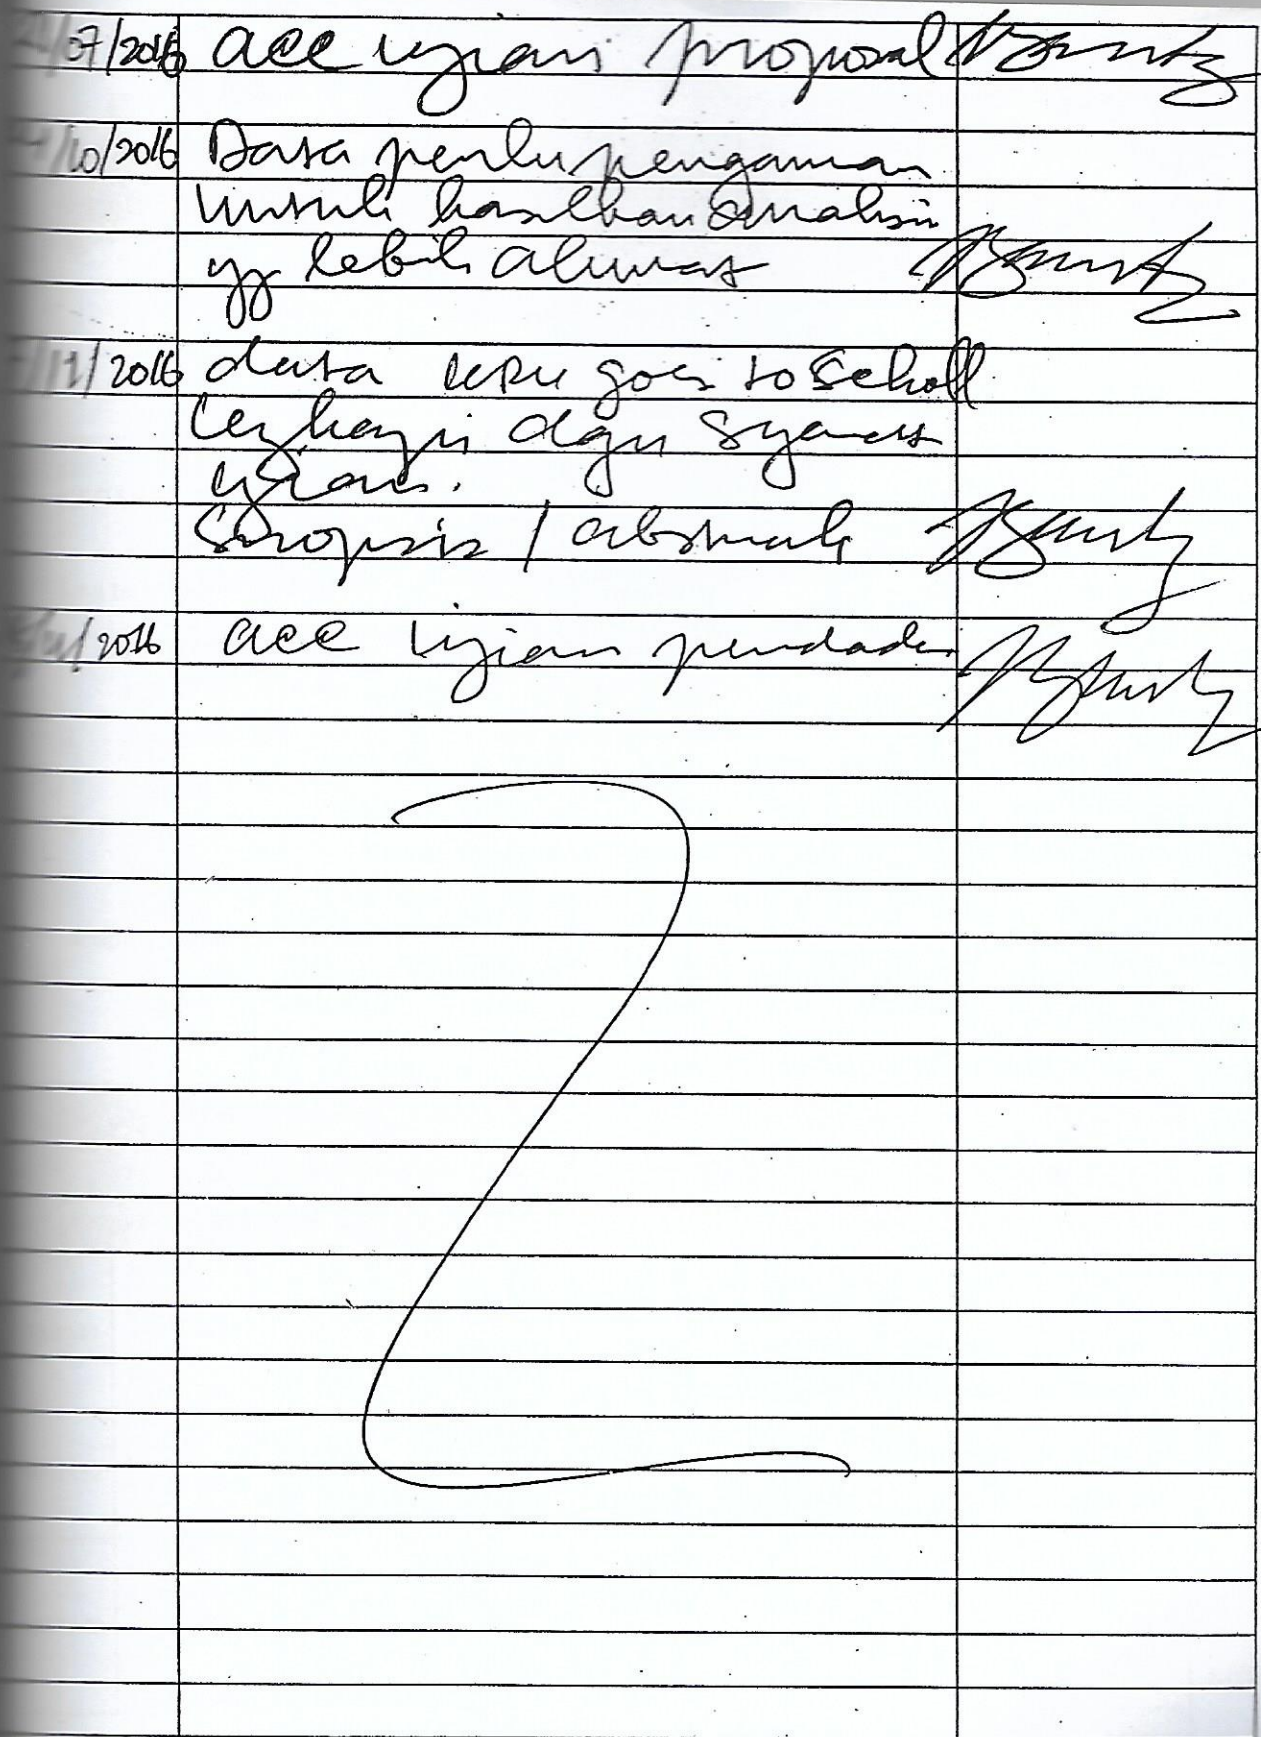 /07/2016 acc ujian proposal
/10/2016 Data perlu pengaman
untuk hasilkan analisis
yg lebih akurat
/2016 data KPU goes to scholl
lengkapi dgn syarat
ujian.
Sinopsis / abstrak
/2016 acc ujian pendadaran